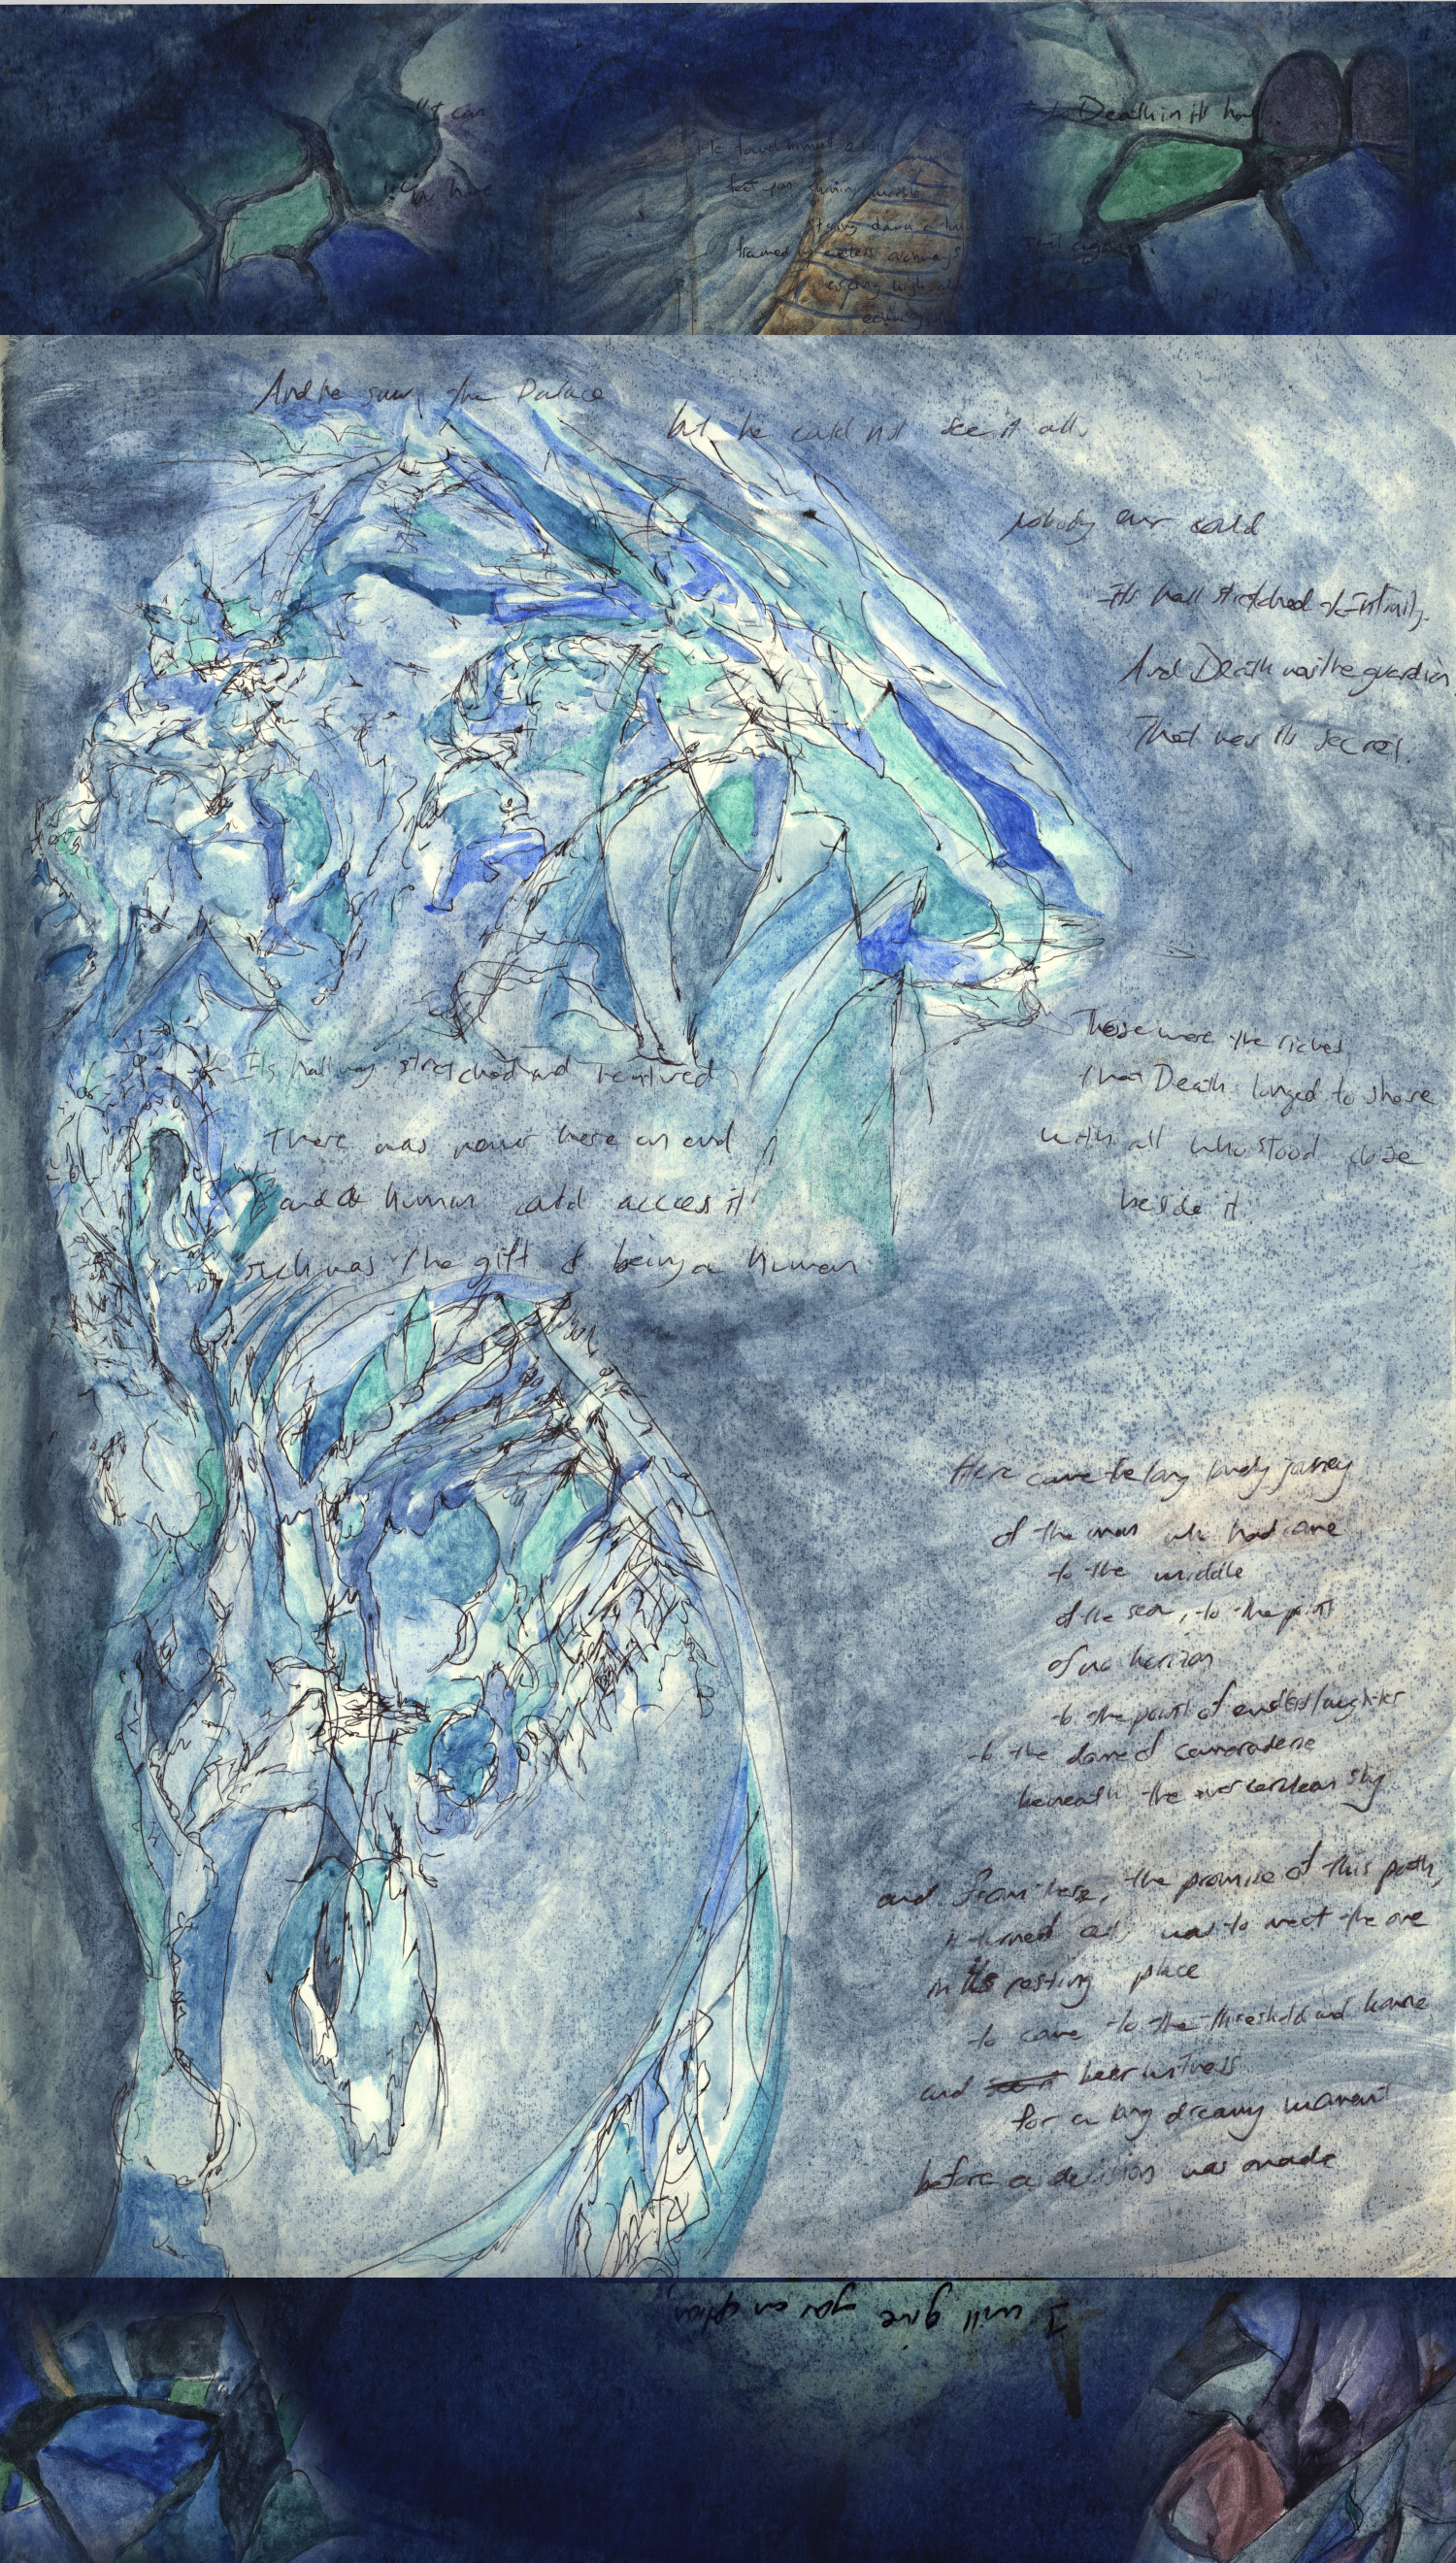 "I can
Death in it
He found himself
feet upon shining marble
strong dark
framed endless archways
And he saw the Palace
but he could not see it all,
nobody ever could
Its hall stretched to Infinity.
And Death was the guardian
That was its secret.
Its hallway stretched and
There was never here an end
and a human could access it
such was the gift of being a human
These were the riches
that Death longed to share
with all who stood close
beside it.
Here came the long lonely journey
of the man who had come
to the middle
of the sea, to the point
of no horizon
to the point of endless laughter
to the dome of camaraderie
beneath the cerulean sky
and from here, the promise of this path,
it turned out, was to meet the one
in its resting place
to come to the threshold and leave
and bear witness
for a long dreamy moment
before a decision was made
I will give you an option